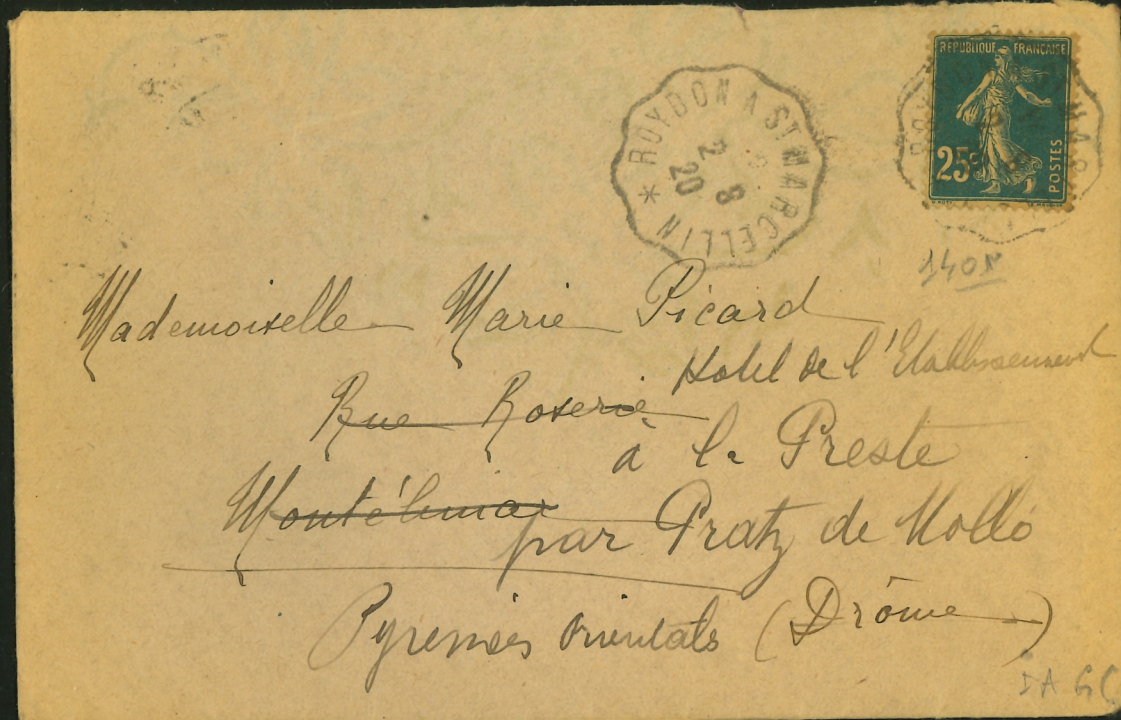 ROYBON A ST MARCELLIN *
2 8
20
REPUBLIQUE FRANÇAISE
25c
POSTES
140
Mademoiselle Marie Picard
Hotel de l'Etablissement
Rue Roserie
à la Preste
Montélimar
par Pratz de Molló
Pyrenées Orientals (Drôme)